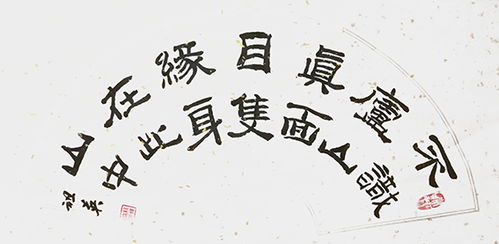 不識
廬山
眞面
目雙
緣身
在此
山中